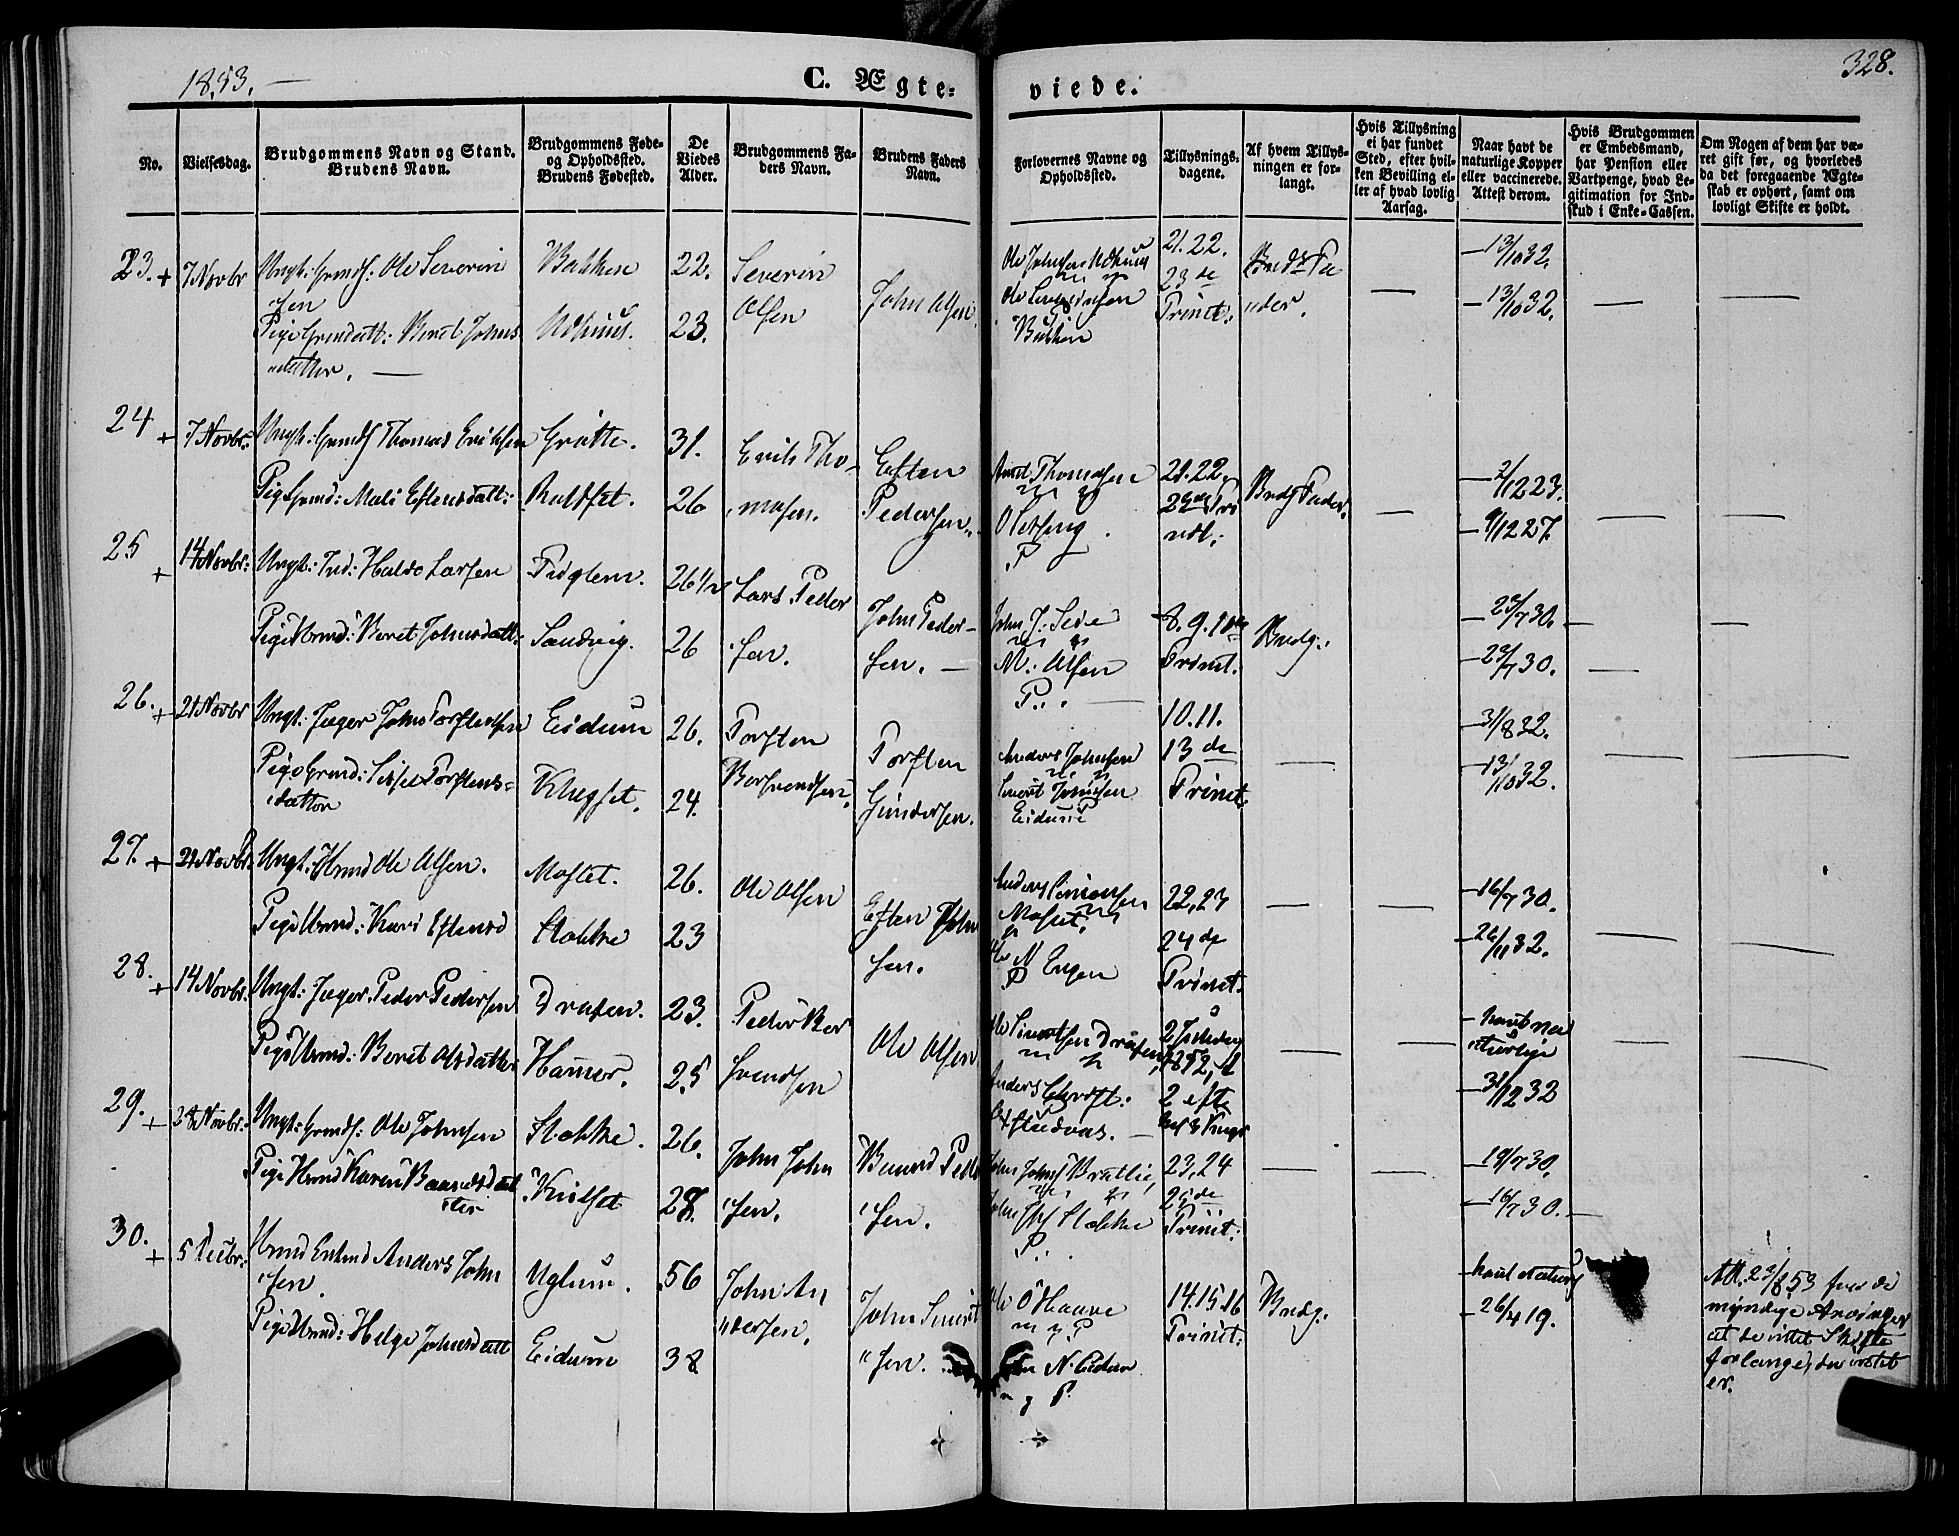 1853. —
C. Ægte-
viede.
328.
No.
Vielsesdag.
Brudgommens Navn og Stand.
Brudens Navn.
Brudgommens Føde-
og Opholdssted.
Brudens Fødested.
De
Viedes
Alder.
Brudgommens Fa-
ders Navn.
Brudens Faders
Navn.
Forlovernes Navne og
Opholdssted.
Tillysnings-
dagene.
Af hvem Tillys-
ningen er for-
langt.
Hvis Tillysning
ei har fundet
Sted, efter hvil-
ken Bevilling el-
ler af hvad lovlig
Aarsag.
Naar havt de
naturlige Kopper
eller vaccinerede.
Attest derom.
Hvis Brudgommen
er Embedsmand,
har Pension eller
Vartpenge, hvad Le-
gitimation for Ind-
skud i Enke-Cassen.
Om Nogen af dem har væ-
ret gift før, og hvorledes
da det foregaaende Ægte-
skab er ophørt, samt om
lovligt Skifte er holdt.
23. + 7 Novbr
Ungk: Grmds: Ole Severin
sen
Pige Grmdatt: Beret Johns
datter. —
Bakken
Udhuus.
22.
23.
Severin
Olsen
John Olsen
Ole Johnsen Udhuus
Ole Severinsen
Bakken
21. 22.
23 de
Trinit:
13/10 32.
13/10 32.
24 + 7 Novbr.
Ungk: Grmds Thomas Eriksen
Pige Grmd: Mali Estensdatt:
Grøtte.
31.
26
Erik Tho-
masen.
Esten
Pedersen
Arnt Thomasen
21. 22.
2/12 23.
9/12 27.
25 + 14 Novbr:
Ungk: Ind: Haldo Larsen
Pige Brmd: Beret Johnsdatt:
Fuglem.
Sandvig.
26 1/2
26
Lars Peder
sen.
John Peder-
sen. —
M: Olsen
8. 9. 10de
Trinit.
Brudg:
23/7 30.
23/7 30.
26. + 21 Novbr
Ungk: Jæger John Torstensen
Pige Grmd: Sissel Torstens-
datter
Eidum
Klegset.
26.
24.
Torsten
Torsten
Gundersen.
Anders Johnsen
Sivert Johnsen
Eidum
10. 11.
13 de
Trinit.
31/8 32.
13/10 32.
27. + 21 Novbr.
Ungk: Brmd Ole Olsen.
Pige Brmd: Kari Estensd
Moslet.
Stokke
26.
23
Ole Olsen
Esten John
sen.
Anders Simonsen
Ole N Engen
22, 23
24 de
Trinit.
16/7 30.
26/11 32.
28. + 14 Novbr.
Ungk: Jæger Peder Pedersen
Pige Brmd: Beret Olsdatter
Draxen.
Hammer.
23.
25
Ole Olsen
havt na
turlige
31/12 32
29. + 28 Novbr:
Ungk: Grmds: Ole Johnsen
Pige Brmd Karen Baardsdat
ter
Stokke.
Kvilset
26.
28.
John John
sen.
Baard Peder
sen.
23, 24
25 de
Trinit:
19/7 30.
16/7 30.
30. + 5 Decbr:
Brmd Enkmd Anders John
sen.
Pige Brmd: Helge Johnsdatt
Uglum.
Eidum
56
38
John An
dersen.
John Sivert
sen.
14. 15. 16
Trinit:
Brudg:
havt naturl
26/4 19.
Att. 23/8 53 fra de
myndige Arvinger
at de intet Skifte
forlange, da intet
er.